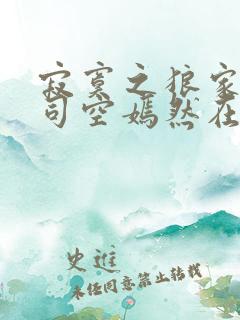 寂寞之狼家
司空嫣然在
史進
未经同意禁止转载